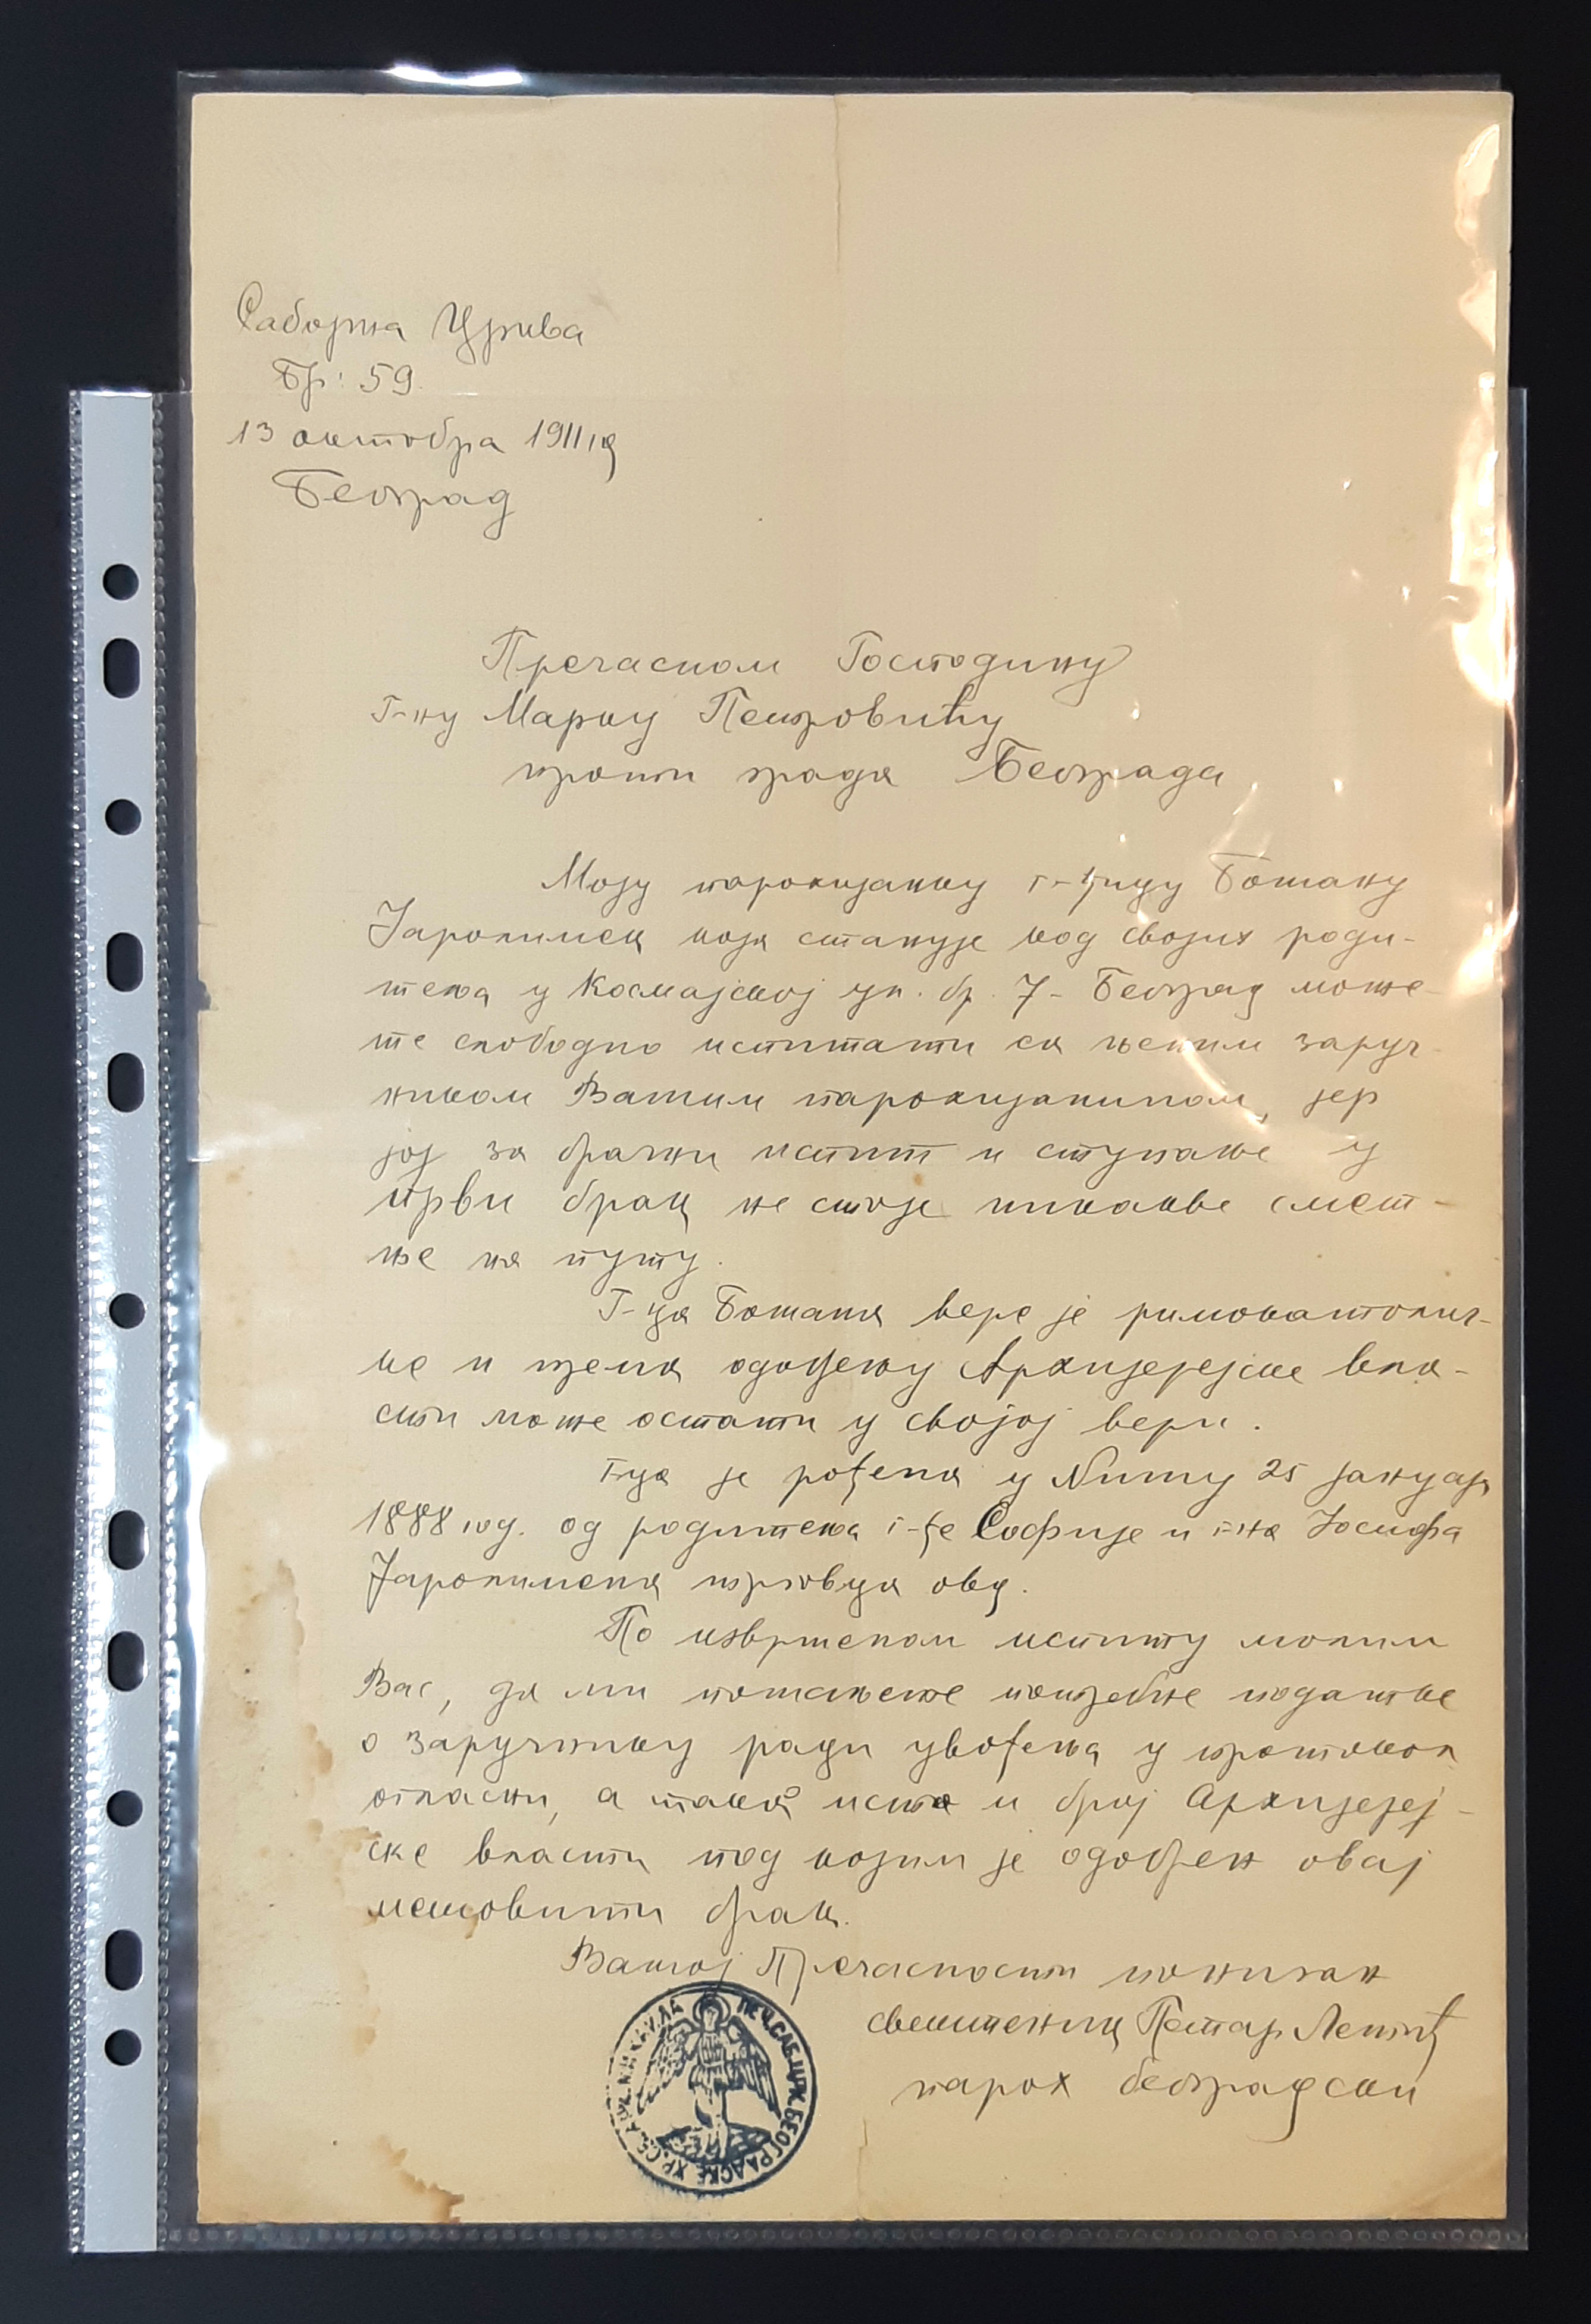 Саборна Црква
Бр: 59.
13 октобра 1911 г.
Београд
Пречасном Господину
Г-ну Марку Петровићу
проти града Београда
Моју парохијанку г-ђицу Бошану
Јаролимек која станује код својих роди-
теља у Космајској ул. бр. 7 - Београд може-
те слободно испитати са њеним заруч-
ником Вашим парохијанином, јер
јој за брачни испит и ступање у
први брак не стоје никакве смет-
ње на путу.
Г-ца Бошана вере је римокатолич-
ке и према одобрењу Архијерејске вла-
сти може остати у својој вери.
Г-ца је рођена у Нишу 25 јануара
1888 год. од родитеља г-ђе Софије и г-на Јосифа
Јаролимека трговца овд.
По извршеном испиту молим
Вас, да ми пошаљете потребне податке
о заручнику ради увођења у протокол
огласни, а тако исто и број Архијереј-
ске власти под којим је одобрен овај
мешовити брак.
Вашој Пречасности понизан
свештеник Петар
парох београдски
ПЕЧ. САБ. ЦРК. БЕОГРАДСКЕ ХР. СВ. АРХ. МИХАИЛА